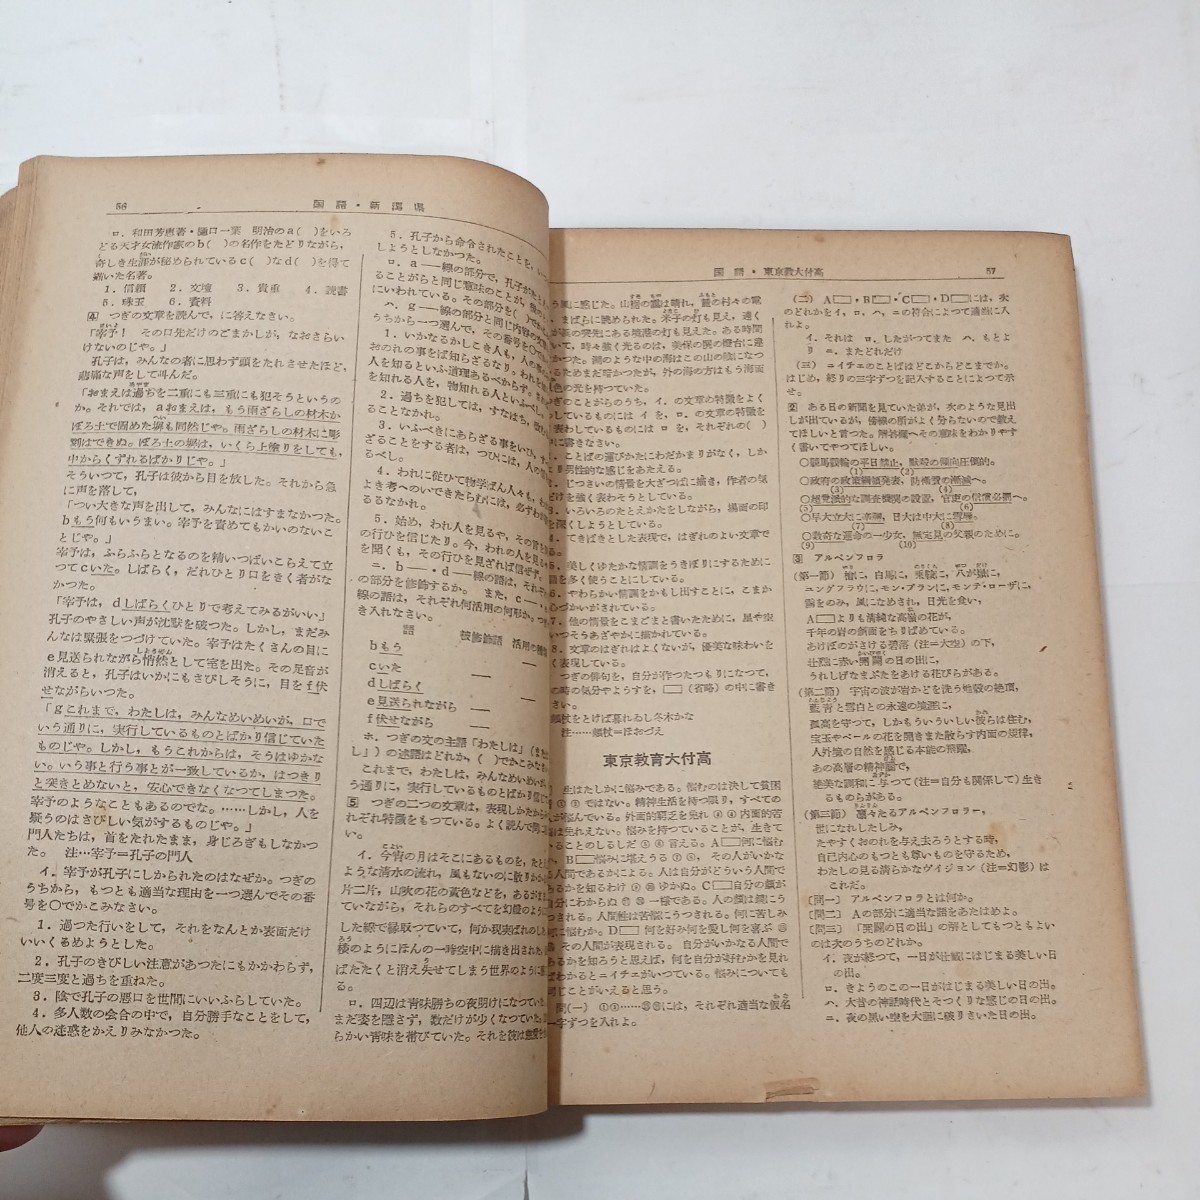 56
国語・新潟県
ロ．和田芳恵著・樋口一葉　明治のa（　）をいろ
どる天才女流作家のb（　）の名作をたどりながら，
奇しき生涯が秘められているc（　）なd（　）を得て
描いた名著。
1．信頼　2．文壇　3．貴重　4．読書
5．珠玉　6．資料
4　つぎの文章を読んで，に答えなさい。
「宰予！　その口先だけのごまかしが，なおさらい
けないのじや。」
孔子は，みんなの者に思わず頭をたれさせたほど，
悲痛な声をして叫んだ。
「おまえは過ちを二重にも三重にも犯そうというの
か。それでは，aおまえは，もう雨ざらしの材木か
ぼろ土で固めた塀も同然じや。雨ざらしの材木に彫
刻はできぬ。ぼろ土の塀は，いくら上塗りをしても，
中からくずれるばかりじや。」
そういつて，孔子は彼から目を放した。それから急
に声を落して，
「つい大きな声を出して，みんなにはすまなかつた。
bもう何もいうまい。宰予を責めてもかいのないこ
とじや。」
宰予は，ふらふらとなるのを精いつぱいこらえて立
つてcいた。しばらく，だれひとり口をきく者がな
かつた。
「宰予は，dしばらくひとりで考えてみるがいい」
孔子のやさしい声が沈黙を破つた。しかし，まだみ
んなは緊張をつづけていた。宰予はたくさんの目に
e見送られながら悄然として室を出た。その足音が
消えると，孔子はいかにもさびしそうに，目をf伏
せながらいつた。
「gこれまで，わたしは，みんなめいめいが，口で
いう通りに，実行しているものとばかり信じていた
ものじや。しかし，もうこれからは，そうはゆかな
い。いう事と行う事とが一致しているか，はつきり
と突きとめないと，安心できなくなつてしまつた。
宰予のようなこともあるのでな。……しかし，人を
疑うのはさびしい気がするものじや。」
門人たちは，首をたれたまま，身じろぎもしなかつ
た。　注…宰予＝孔子の門人
イ．宰予が孔子にしかられたのはなぜか。つぎの
うちから，もつとも適当な理由を一つ選んでその番
号を○でかこみなさい。
1．過つた行いをして，それをなんとか表面だけ
いいくるめようとした。
2．孔子のきびしい注意があつたにもかかわらず，
二度三度と過ちを重ねた。
3．陰で孔子の悪口を世間にいいふらしていた。
4．多人数の会合の中で，自分勝手なことをして，
他人の迷惑をかえりみなかつた。
5．孔子から命令されたことを，
しようとしなかつた。
ロ．a──線の部分で，孔子が
ことがらと同じ意味のことが，
にいわれている。その部分を（　）で
ハ．g──線の部分と同じ内容の
うちから一つ選んで，その番号を○で
1．いかなるかしこき人も，人の
おのれの事をば知らざるなり。われを
人を知るといふ道理あるべからず。
を知れる人を，物知れる人といふべし。
2．過ちを犯しては，すなはち，
ることなかれ。
3．いふべきにあらざる事をいひ，
ざることをする者は，つひには，人の
るべし。
4．われに従ひて物学ばん人々も，
よき考へのいできたらむには，必ずわが
るるなかれ。
5．始め，われ人を見るや，その言を
の行ひを信じたり。今，われの人を見る
を聞くも，その行ひを見ざれば信ぜず。
ニ．b──・d──線の語は，それぞれ
の部分を修飾するか。また，c──・
線の語は，それぞれ何活用の何形か。
き入れなさい。
語　被修飾語　活用の種類
bもう
cいた
dしばらく
e見送られながら
f伏せながら
ホ．つぎの文の主語「わたしは」（また
し」）の述語はどれか，（　）でかこみな
これまで，わたしは，みんなめいめいが，
う通りに，実行しているものとばかり信じて
5　つぎの二つの文章は，表現しかたから
れぞれ特徴をもつている。よく読んで問に
イ．今宵の月はそこにあるものを，たと
ような清水の流れ，風もないのに散りかか
片二片，山吹の花の黄色などを，あるがま
ていながら，それらのすべてを幻燈のように
した線で縁取つていて，何か現実ばれのした
楼のようにほんの一時空中に描き出された，
ばたたくと消え失せてしまう世界のように
ロ．四辺は青味勝ちの夜明けになつていた。
まだ姿を隠さず，数だけが少くなつていた。
らかい青味を帯びていた。それを彼は慈愛と
国語・東京教大付高
57
う風に感じた。山裾の靄は晴れ，麓の村々の電
，まばらに眺められた。米子の灯も見え，遠く
が浜の突先にある境港の灯も見えた。ある時間
いて，時々強く光るのは，美保の関の燈台に違
かつた。湖のような中の海はこの山の陰になつ
るためまだ暗かつたが，外の海の方はもう海面
色の光を持つていた。
ぎのことがらのうち，イ．の文章の特徴をよく
しているものには イ を，ロ．の文章の特徴を
表わしているものには ロ を，それぞれの（　）
に書きなさい。
．ことばの運びかたにわだかまりがなく，しか
り男性的な感じをあたえる。
．じつさいの情景を大ざつぱに描き，作者の気
だけを強く表わそうとしている。
．いろいろのたとえかたをしながら，場面の印
を深くしようとしている。
．てきぱきとした表現で，はぎれのよい文章で
5．美しくゆたかな情調をうきぼりにするために
語を多く使うことにしている。
6．やわらかい情調をかもし出すことに，こまか
心づかいがされている。
7．他の情景をこまごまと書いたために，星や空
いつそうあざやかに描かれている。
8．文章のはぎれはよくないが，優美な味わいを
く表現している。
つぎの俳句を，自分が作つたつもりになつて，
の時の気分やようすを，□（省略）の中に書き
さい。
頬杖をとけば暮れゐし冬木かな
注……頬杖＝ほおづえ
東京教育大付高
生はたしかに悩みである。悩むのは決して貧困
①②ではない。精神生活を持つ限り，すべての
が悩んでいる。外面的窮乏を免れ③④内面的苦
は免れえない。悩みを持つていることが，生きて
ることのしるしだ⑤⑥言える。A□人が悩む
，B□悩みに堪えうる⑦⑧，その人がいかな
る人間であるかによる。人は自分がどういう人間で
るかを知るわけ⑨⑩ゆかぬ。C□自分の顔が
自分にわからぬ⑪⑫一様である。人の顔は鏡にう
つされる。人間性は苦悩にうつされる。何に苦しみ
に悩むか。D□何を好み何を愛し何を喜ぶ⑬
その人間が表現される。自分がいかなる人間で
るかを知ろうと思えば，何を自分が好むかを見れ
ばわかるとニイチェがいつている。悩みについても
じことがいえると思う。
問（一）①②……⑬⑭には，それぞれ適当な仮名
一字ずつを入れよ。
（二）A□・B□・C□・D□には，次
のどれかをイ，ロ，ハ，ニの符合によつて適当に入
れよ。
イ．それは　ロ．したがつてまた　ハ．もとよ
り　ニ．またどれだけ
（三）ニイチェのことばはどこからどこまでか。
はじめ，終りの三字ずつを記入することによつて示
せ。
2　ある日の新聞を見ていた弟が，次のような見出
しが出ているが，傍線の所がよく分らないので教え
てほしいと言つた。解答欄へその意味をわかりやす
く書いてやつてほしい。
○競馬競輪の平日禁止，厭戦の傾向圧倒的。
(1)　(2)
○政府の政策綱領発表，防衛費の漸減へ。
(3)　(4)
○超党派的な調査機関の設置，官吏の信賞必罰へ。
(5)　(6)
○早大立大に辛勝，日大は中大に雪辱。
(7)　(8)
○数奇な運命の一少女，無定見の父親のために。
(9)　(10)
3　アルペンフロラ
（第一節）槍に，白馬に，乗鞍に，八が嶽に，
ユングフラウに，モン・ブランに，モンテ・ローザに，
霧をのみ，風になめされ，日光を食い，
A□よりも清純な高嶺の花が，
千年の岩の斜面をちりばめている。
あけぼのがさける碧落（注＝大空）の下，
壮烈に赤い開闢の日の出に，
うれしげなまぶたをあける花びらがある。
（第二節）宇宙の波が岩かどを洗う地殻の絶頂，
藍青と雪白との永遠の境涯に，
孤高を守つて，しかもういういしい彼らは住む，
宝玉やベールの花を開きまた散らす内面の規律，
人外境の自然を感じる本能の飛躍，
あの高層の精神圏で，
絶美な調和に与つて（注＝自分も関係して）生き
るものらがある。
（第三節）凛々たるアルペンフロラー，
世になれしたしみ，
たやすくおのれを与え去ろうとする時，
自己内心のもつとも尊いものを守るため，
わたしの見る清らかなヴイジョン（注＝幻影）は
これだ。
［問一］アルペンフロラとは何か。
［問二］Aの部分に適当な語をあたはめよ。
［問三］「開闢の日の出」の解としてもつともよい
のは次のうちのどれか。
イ．夜が終つて，一日が壮厳にはじまる美しい日
の出。
ロ．きようのこの一日がはじまる美しい日の出。
ハ．大昔の神話時代とそつくりな感じの日の出。
ニ．夜の黒い空を大胆に破りさいた日の出。